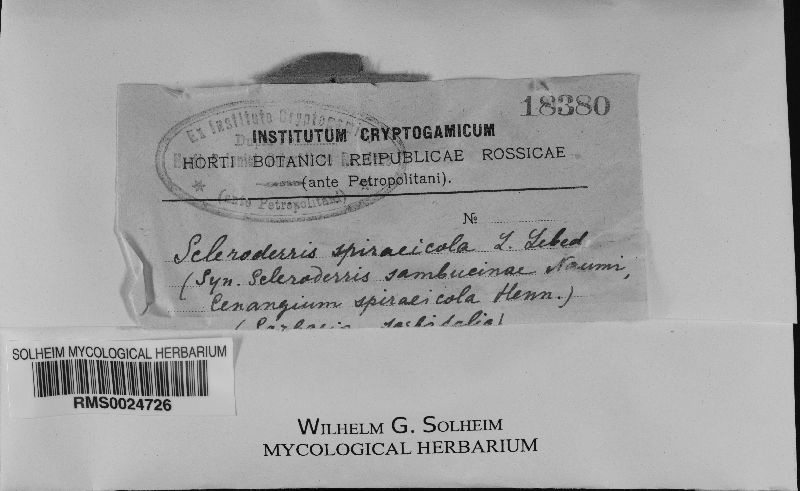 18380
Ex Instituto Cryptogamic
INSTITUTUM CRYPTOGAMICUM
HORTI BOTANICI REIPUBLICAE ROSSICAE
(ante Petropolitani).
(ante Petropolitani)
№
Scleroderris spiraeicola L. Lebed
(Syn. Scleroderris sambucinae Naumi,
Cenangium spiraeicola Henn.)
sorbifolia)
SOLHEIM MYCOLOGICAL HERBARIUM
RMS0024726
WILHELM G. SOLHEIM
MYCOLOGICAL HERBARIUM